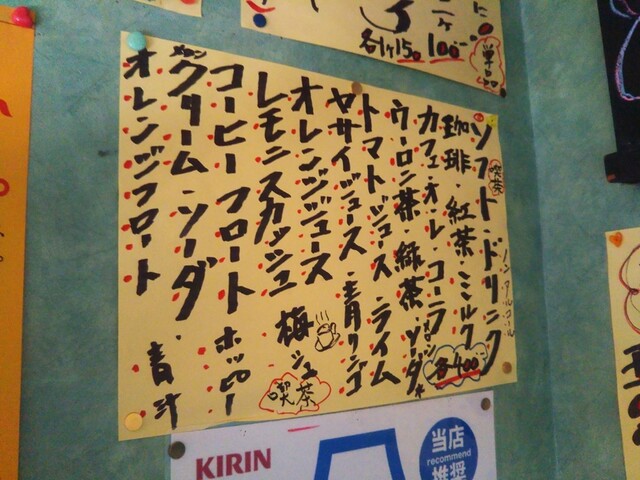 ソフト・ドリンク
喫茶
ノンアルコール
珈琲・紅茶・ミルク
各400
カフェ・オ・レ コーラ
メロン
ウーロン茶・緑茶・ソーダ
トマトジュース ライム
ヤサイジュース・青リンゴ
オレンジジュース
梅ジュ
喫茶
レモンスカッシュ
コーヒーフロート ホッピー
メロン
クリーム・ソーダ
オレンジフロート 青汁
各1ケ150 100
単品
KIRIN
当店
recommend
推奨